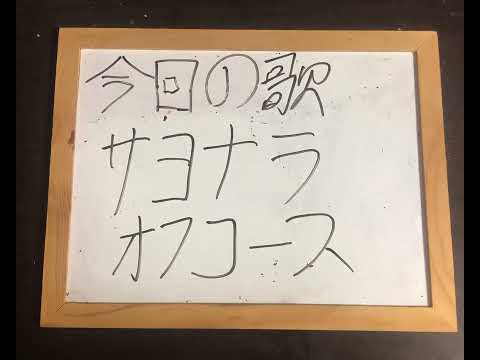 今日の歌
サヨナラ
オフコース